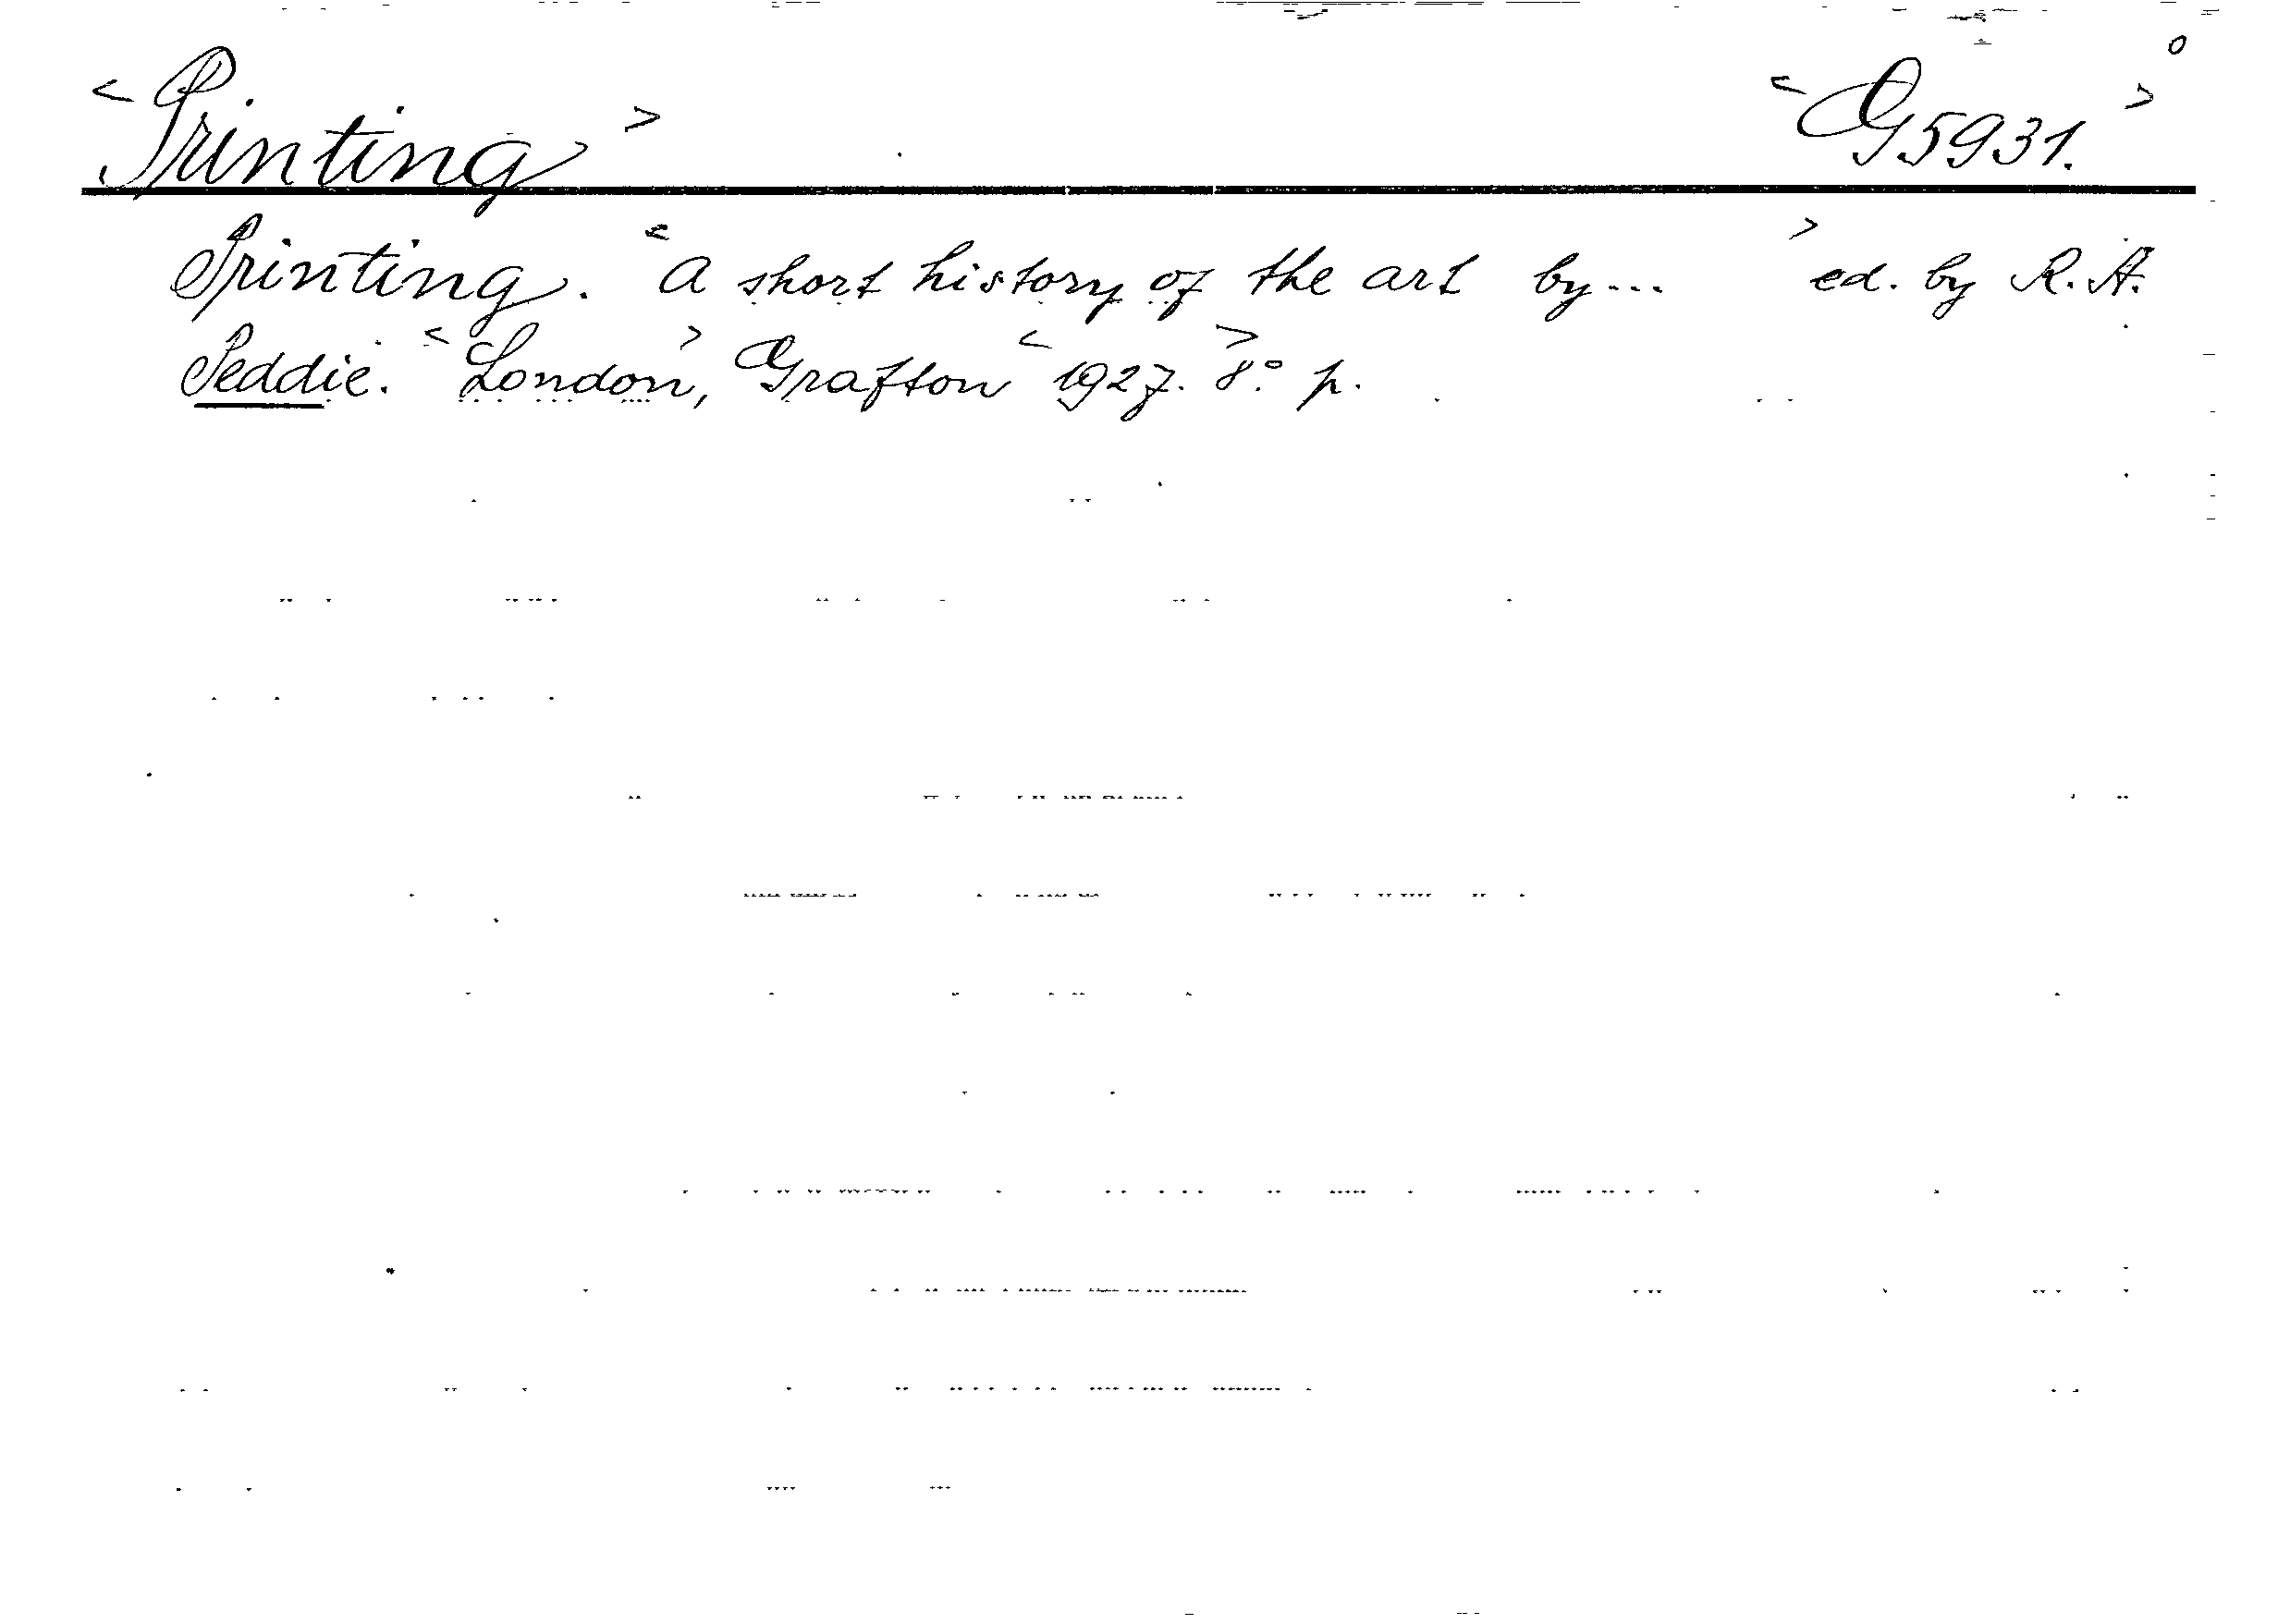 < Printing > < G5931. >
Printing. < A short history of the art by... > ed. by R. A.
Peddie. < London >, Grafton < 1927. > 8° p.